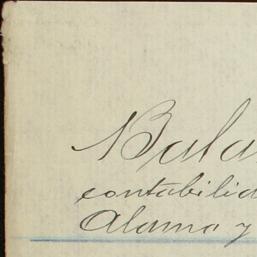 Bala
contabilid
Alamo y